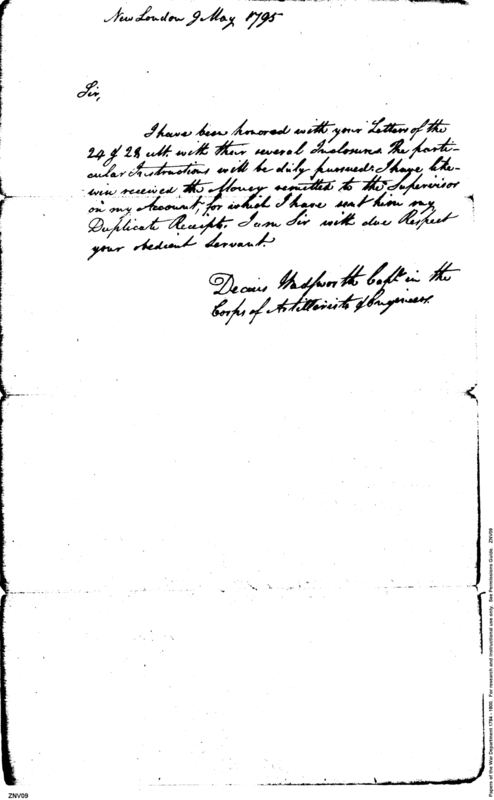 New London 9 May 1795
Sir,
I have been honored with your Letters of the
24 & 28 ult. with their several Inclosures. The parti-
cular Instructions will be duly pursued: I have like-
wise received the Money remitted to the Supervisor
on my Account, for which I have sent him my
Duplicate Receipts. I am Sir with due Respect
your obedient Servant.
Decius Wadsworth Capt. in the
Corps of Artillerists & Engineers.
Papers of the War Department 1784 - 1800. For research and instructional use only. See Permissions Guide. ZNV09
ZNV09